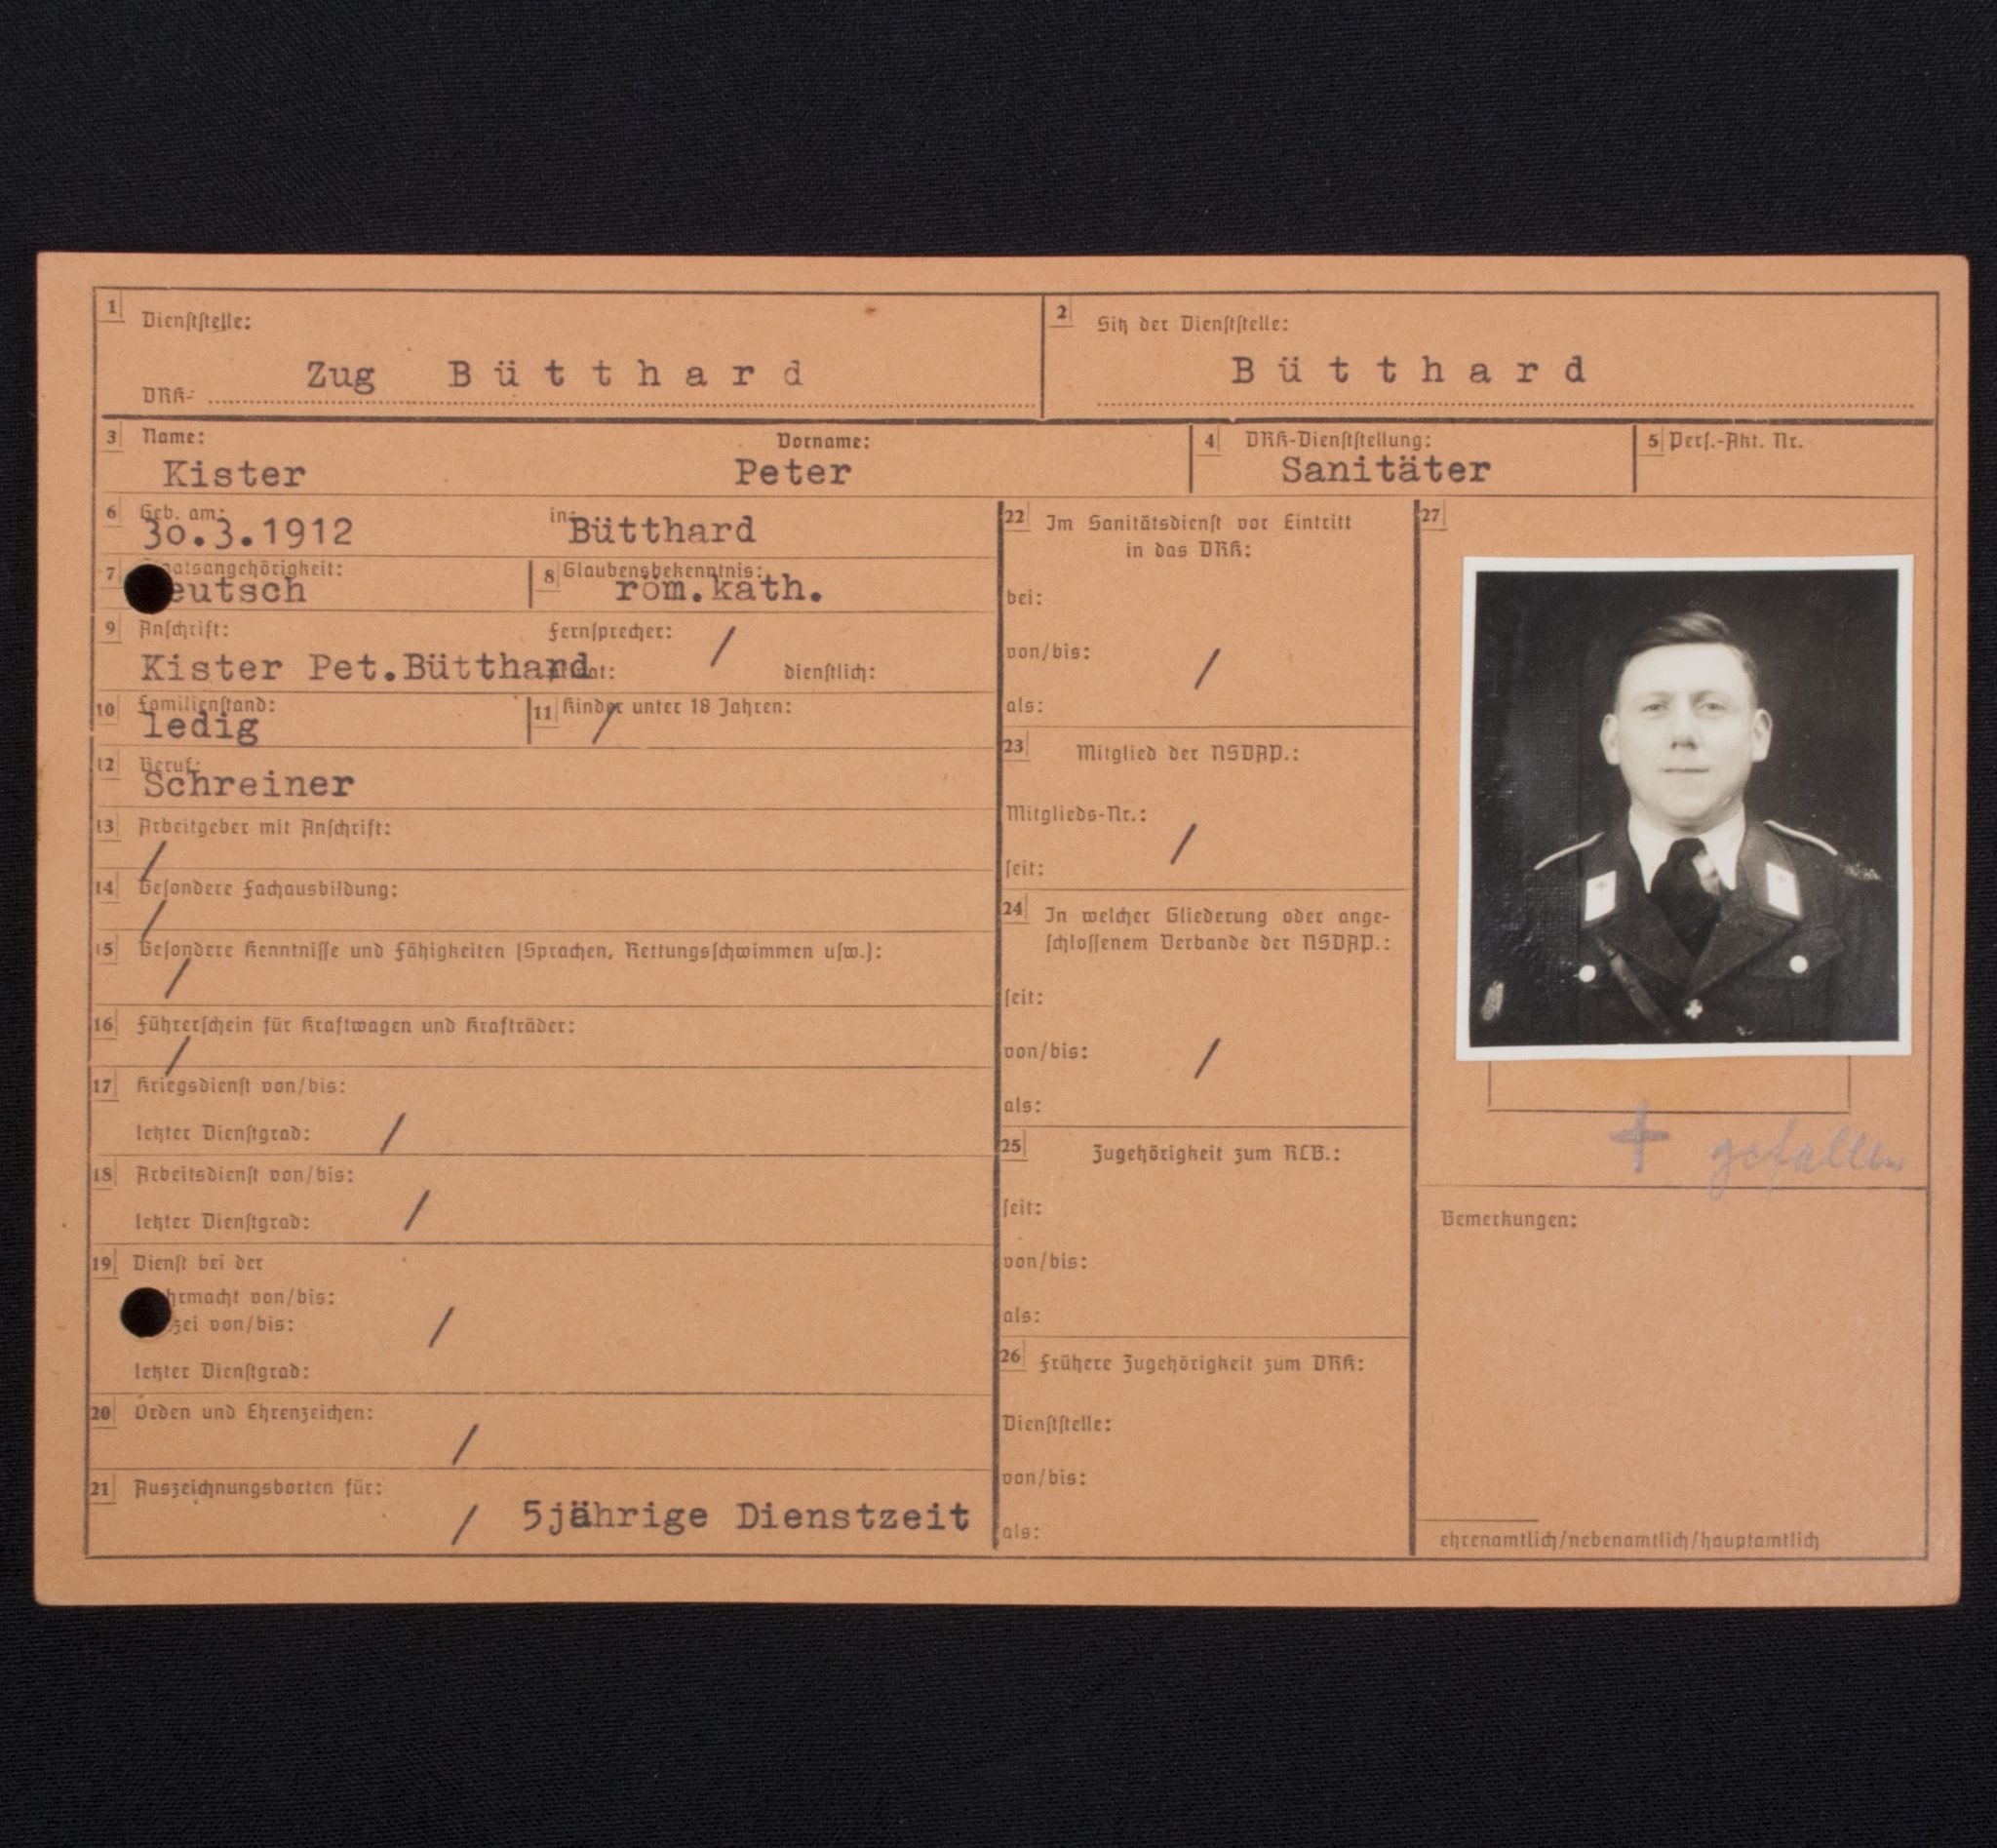 1 Dienststelle:
DRK- Zug Bütthard
2 Sitz der Dienststelle:
Bütthard
3 Name: Vorname:
Kister Peter
4 DRK-Dienststellung:
Sanitäter
5 Pers.-Akt. Nr.
6 Geb. am: in:
3o.3.1912 Bütthard
7 aatsangehörigkeit:
eutsch
8 Glaubensbekenntnis:
röm.kath.
9 Anschrift: Fernsprecher: /
Kister Pet.Bütthard at: dienstlich:
10 Familienstand:
ledig
11 Kinder unter 18 Jahren:
/
12 Beruf:
Schreiner
13 Arbeitgeber mit Anschrift:
/
14 Besondere Fachausbildung:
/
15 Besondere Kenntnisse und Fähigkeiten (Sprachen, Rettungsschwimmen usw.):
/
16 Führerschein für Kraftwagen und Krafträder:
/
17 Kriegsdienst von/bis:
letzter Dienstgrad: /
18 Arbeitsdienst von/bis:
letzter Dienstgrad: /
19 Dienst bei der
hrmacht von/bis:
zei von/bis: /
letzter Dienstgrad:
20 Orden und Ehrenzeichen:
/
21 Auszeichnungsborten für:
/ 5jährige Dienstzeit
22 Im Sanitätsdienst vor Eintritt
in das DRK:
bei:
von/bis: /
als:
23 Mitglied der NSDAP.:
Mitglieds-Nr.:
/
seit:
24 In welcher Gliederung oder ange-
schlossenem Verbande der NSDAP.:
seit:
von/bis: /
als:
25 Zugehörigkeit zum RLB.:
seit:
von/bis:
als:
26 Frühere Zugehörigkeit zum DRK:
Dienststelle:
von/bis:
als:
27
† gefallen
Bemerkungen:
ehrenamtlich/nebenamtlich/hauptamtlich